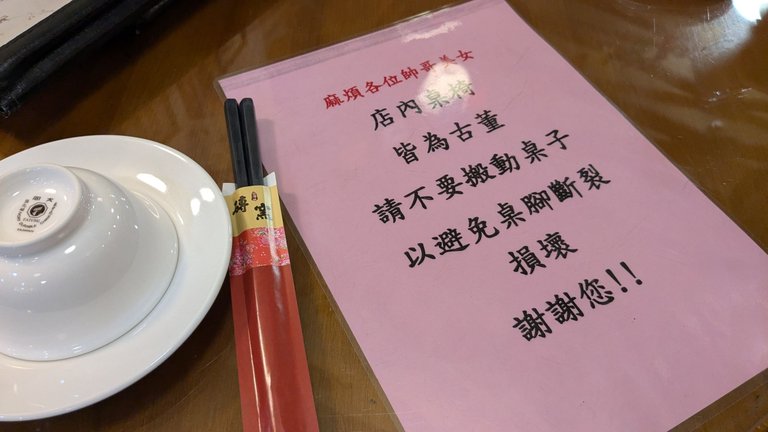 麻煩各位帥哥美女
店內桌椅
皆為古董
請不要搬動桌子
以避免桌腳斷裂
損壞
謝謝您!!
磚窯
大同
TATUNG